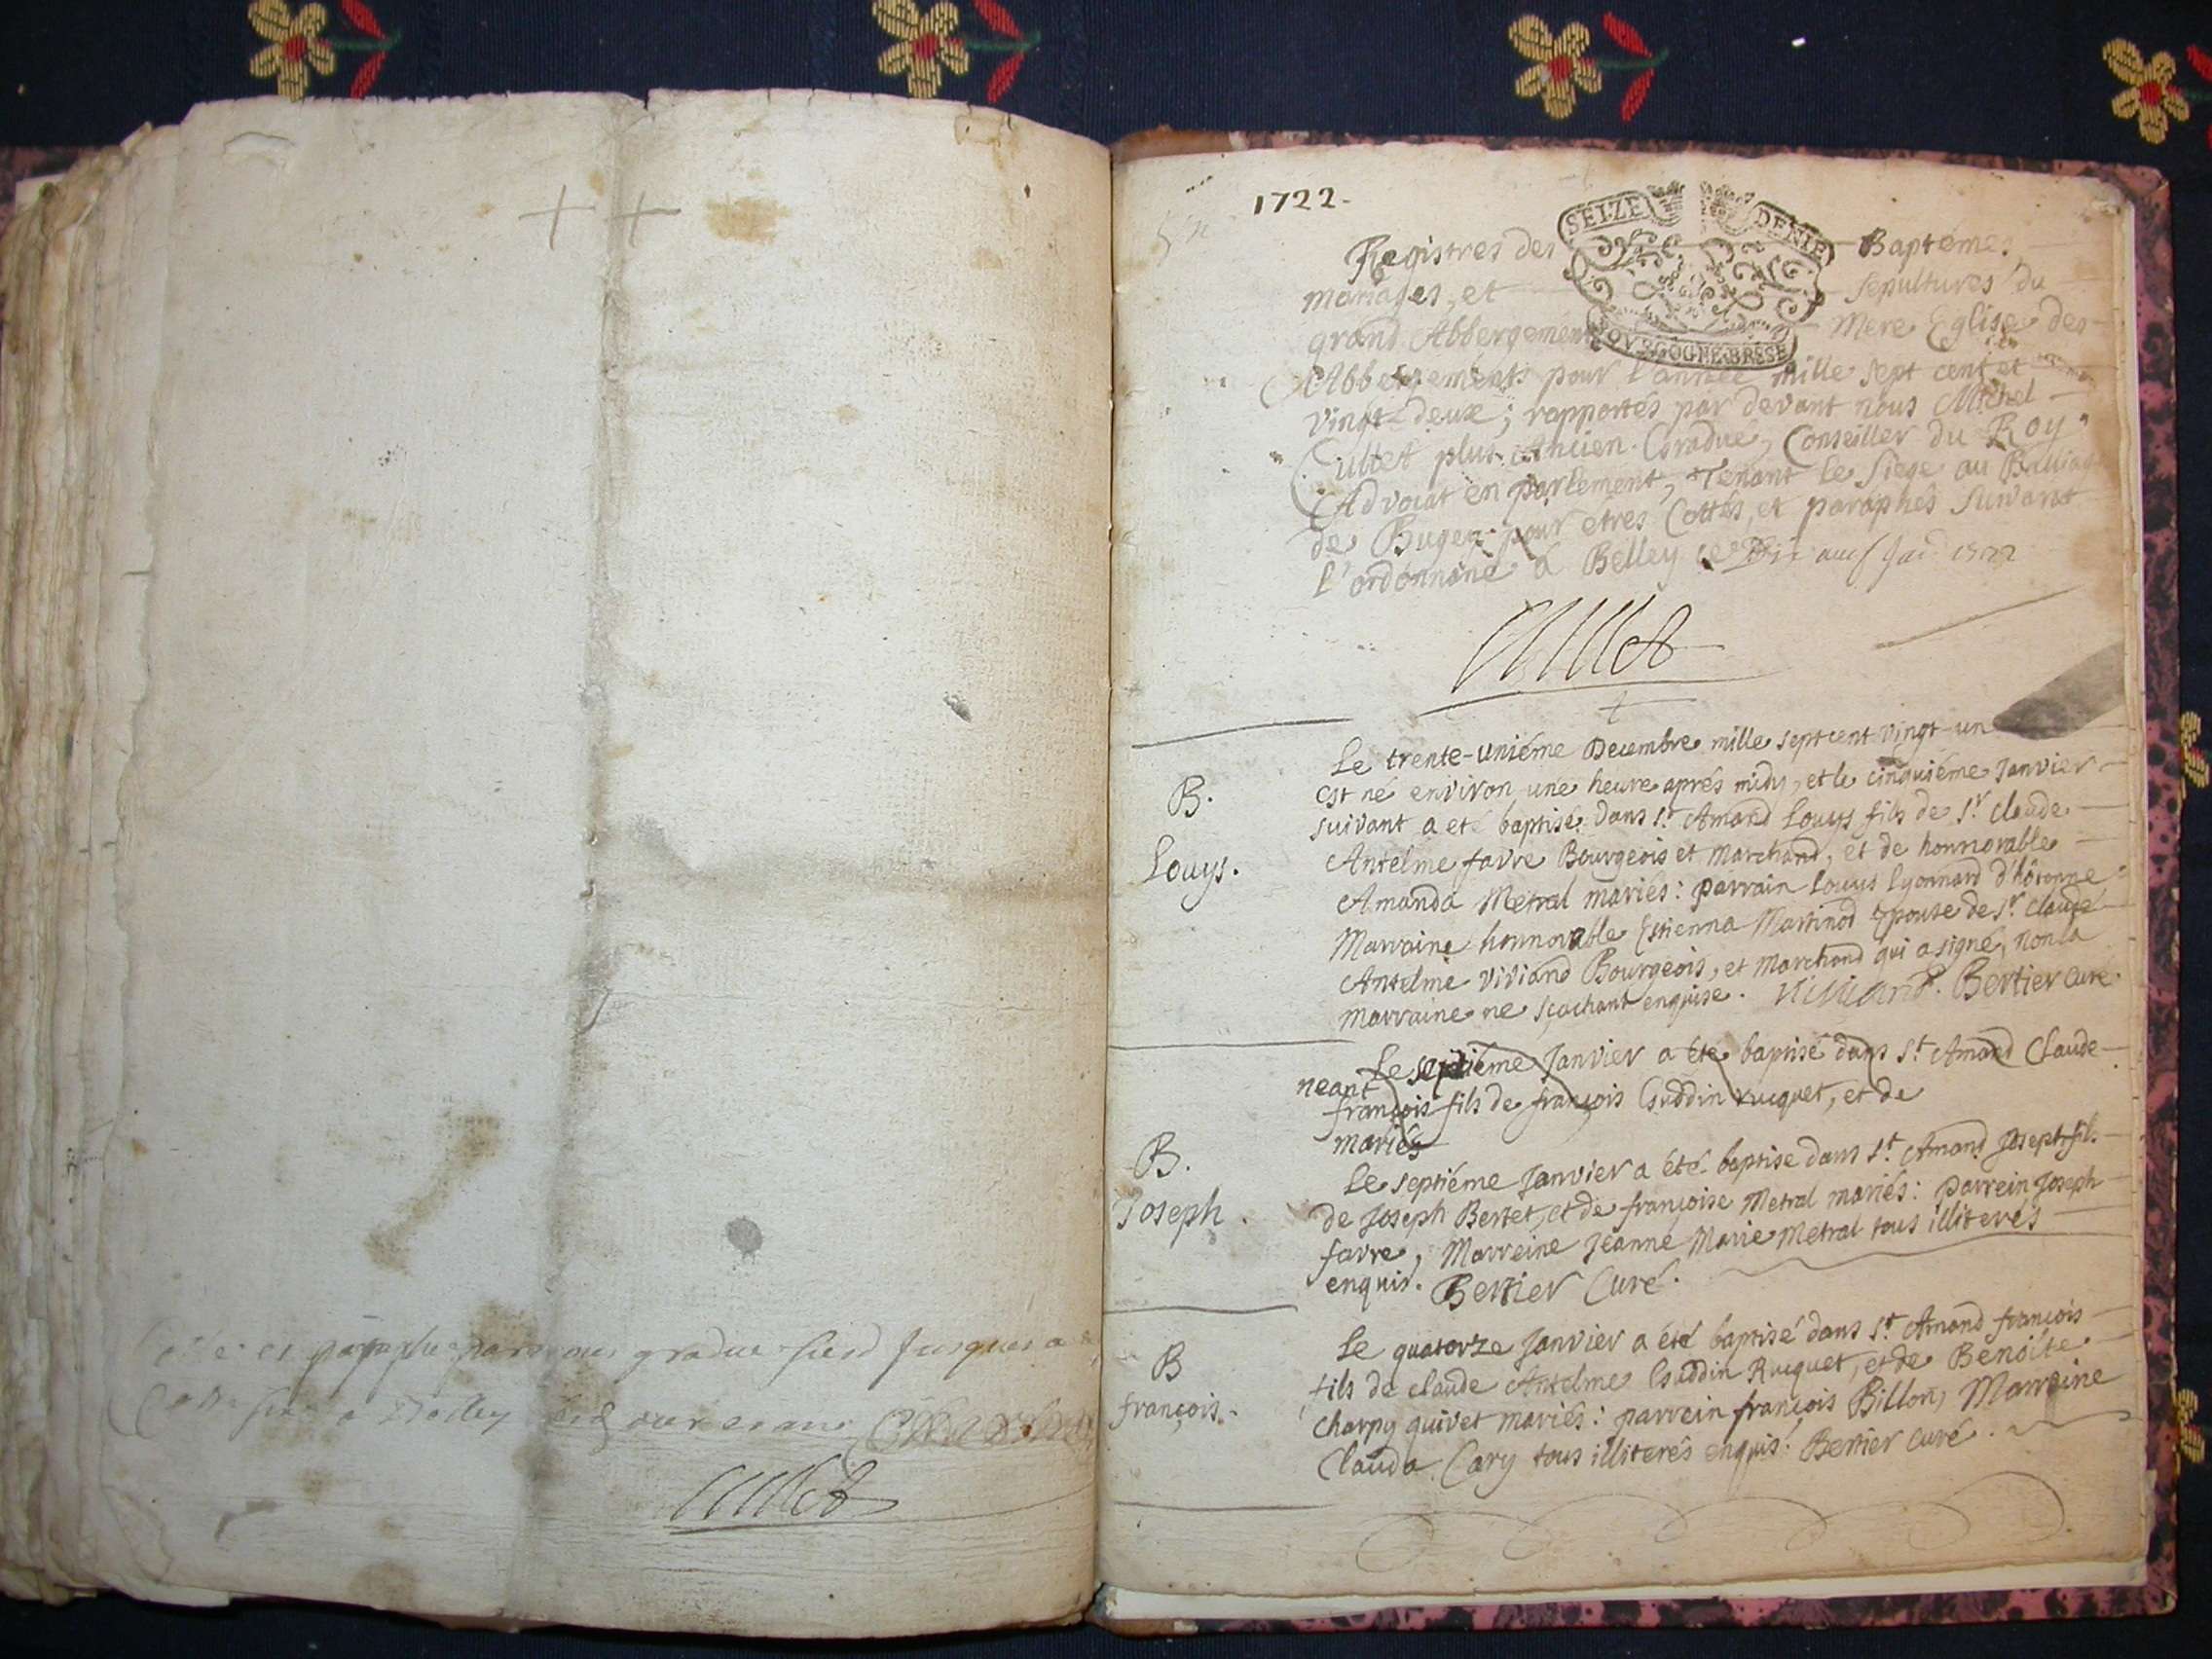 par nous gradué jusques a
a Belley
Cullet
1722.
SEIZE DENIE
BOURGOGNE BRESSE
Registres des Baptêmes,
mariages, et sepultures du
grand Abbergement Mere Eglise des
Abbergements pour l'année mille sept cent et
vingt-deux; rapportés par devant nous Michel
Cullet plus Ancien Gradué, Conseiller du Roy
Advocat en parlement, Tenant le Siege au Balliage
de Bugey pour etres Cottés, et paraphés suivant
l'ordonnance a Belley ce 1722
Cullet
B.
Louys.
Le trente-uniéme Decembre mille sept cent vingt-un
est né environ une heure aprés midy, et le cinquiéme Janvier
suivant a eté baptisé dans St. Amand Louys fils de Sr. Claude
Antelme favre Bourgeois et Marchand, et de honnorable
Amanda Metral mariés: parrain Louys Lyonnard d'hôtonne
Marraine honnorable Estienna Martinod Epouse de Sr. Claude
Antelme Viviand Bourgeois, et Marchand qui a signé, non la
marraine ne sçachant enquise. Viviand. Bertier curé.
neant
Le septiéme Janvier a été baptisé dans St. Amand Claude
françois fils de françois Guddin rucquet, et de
mariés
B.
Joseph.
Le septiéme Janvier a été baptisé dans St. Amand Joseph fils
de Joseph Bertet, et de françoise Metral mariés: parrein Joseph
favre, Marreine Jeanne Marie Metral tous illiterés
enquis. Bertier Curé.
B
françois.
Le quatorze Janvier a été baptisé dans St. Amand françois
fils de Claude Antelme Guddin Rucquet, et de Benoite
Charpy quivet mariés: parrein françois Billon, Marreine
Clauda Cary tous illiterés enquis. Bertier curé.